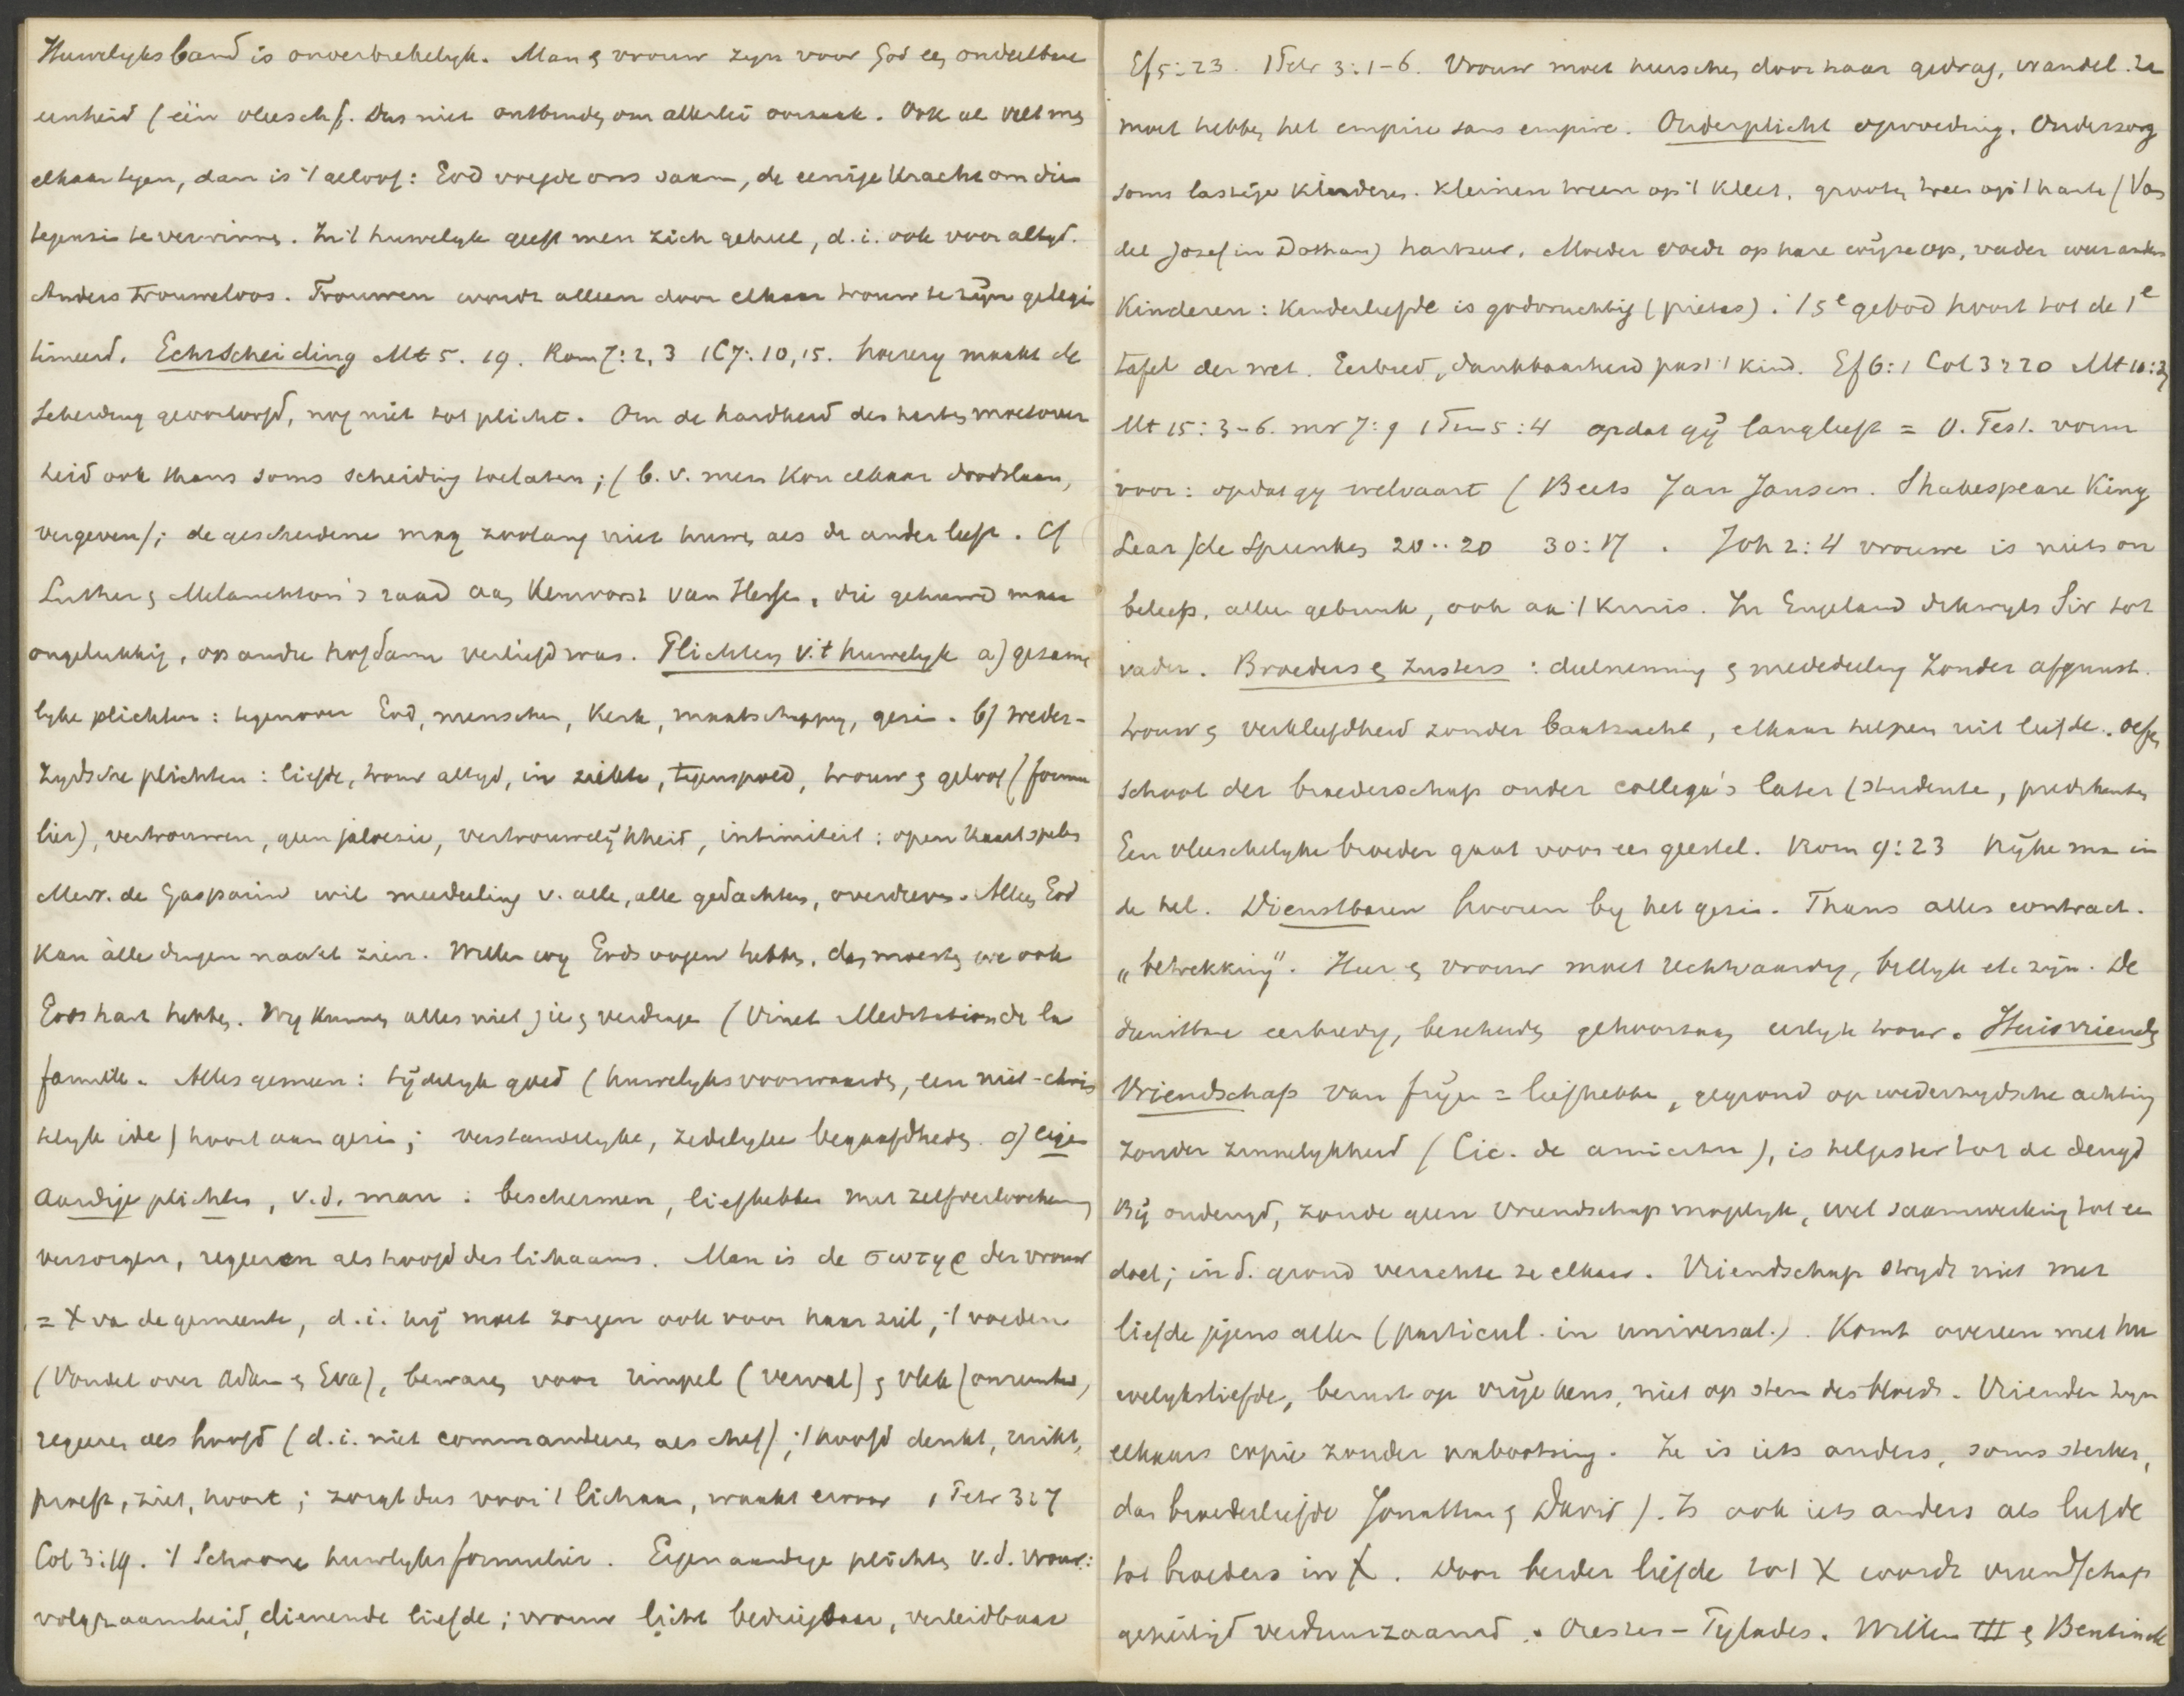 Huwelyksband is onverbrekelyk. Man & vrouw zyn voor God een ondeelbare
eenheid (één vleesch). Dus niet ontbinden om allerlei oorzaak. Ook al valt men
elkaar tegen, dan is 't geloof: God voegde ons saam, de eenige kracht om die
tegenzin te verwinnen. In 't huwelyk geeft men zich geheel, d.i. ook voor altyd.
Anders trouweloos. Trouwen wordt alleen door elkaar trouw te zijn gelegi
timeerd. Echtscheiding Mt 5. 19. Rom 7: 2, 3 1C 7: 10, 15. hoerery maakt de
scheiding geoorloofd, nog niet tot plicht. Om de hardheid des harten moet over
heid ook thans soms scheiding toelaten; (b.v. men kon elkaar doodslaan,
vergeven); de gescheidene mag zoolang niet huwen als de ander leeft. Cf
Luther & Melanchton's raad aan Keurvorst van Hessen, die gehuwd maar
ongelukkig, op andre hofdame verliefd was. Plichten v. 't huwelyk a) gezame
lyke plichten: tegenover God, menschen, Kerk, maatschappy, gezin. b) weder-
zydsche plichten: liefde, trouw altyd, in ziekte, tegenspoed, trouw & geloof (formu
lier), vertrouwen, geen jaloezie, vertrouwelijkheid, intimiteit: open kaart spelen
Mevr. de Gasparin wil meedeeling v. alle, alle gedachten, overdreven. Alleen God
kan àlle dingen naakt zien. Willen wy Gods oogen hebben, dan moesten we ook
Gods hart hebben. Wy kunnen alles niet zien & verdragen (Vinet Meditation de la
famille. Alles gemeen: tijdelyk goed (huwelyksvoorwaarden, een niet-chris
telyk idee) hoort aan gezin; verstandelyke, zedelyke begaafdheden. c) eigen
aardige plichten, v.d. man: beschermen, liefhebben met zelfverloochening
verzorgen, regeeren als hoofd des lichaams. Man is de σωτηρ der vrouw
= X van de gemeente, d.i. hij moet zorgen ook voor haar ziel, 't voeden
(Vondel over Adam & Eva), bewaren voor rimpel (verval) & vlek (onreinheid,
regeeren als hoofd (d.i. niet commandeeren als chef); 't hoofd denkt, ruikt,
proeft, ziet, hoort; zorgt dus voor 't lichaam, waakt ervoor 1 Petr 3:7
Col 3:19. 't Schoone huwelyksformulier. Eigenaardige plichten v.d. vrouw:
volgzaamheid, dienende liefde; vrouw licht bedriegbaar, verleidbaar
Ef 5:23. 1 Petr 3:1-6. Vrouw moet heerschen door haar gedrag, wandel. Ze
moet hebben het empire sans empire. Ouderplicht opvoeding. Ouderzorg
soms lastige kinderen. Kleinen treen op 't kleed, grooten treen op 't harte (Von
del Josef in Dothan) hartzeer. Moeder voedt op hare wijze op, vader weer anders
Kinderen: Kinderliefde is godvruchtig (pietas). 't 5e gebod hoort tot de 1e
tafel der wet. Eerbied, dankbaarheid past 't kind. Ef 6:1 Col 3:20 Mt 10:37
Mt 15:3-6. Mr 7:9 1 Tim 5:4 opdat gij langleeft = O. Test. vorm
voor: opdat gy welvaart (Beets Jan Jansen. Shakespeare King
Lear) de Spreuken 20..20 30:17. Joh 2:4 vrouwe is niets on
beleefs, aller gebruik, ook aan 't kruis. In Engeland dikwyls Sir tot
vader. Broeders & zusters: deelneming & mededeeling zonder afgunst.
trouw & verkleefdheid zonder baatzucht, elkaar helpen uit liefde. Oefen
school der broederschap onder collega's later (studenten, predikanten
Een vleeschelyke broeder gaat voor een geestel. Rom 9:23 Rijke man in
de hel. Dienstboren hooren by het gezin. Thans alles contract.
„betrekking". Heer & vrouw moet rechtvaardig, billyk etc zijn. De
dienstbare eerbiedig, bescheiden gehoorzaam eerlyk trouw. Huisvrienden
Vriendschap van frijen = liefhebben, gegrond op wederzydsche achting
zonder zinnelykheid (Cic. de amicitia), is helpster tot de deugd
Bij ondeugd, zonde geen vriendschap mogelyk, wel saamwerking tot een
doel; in d. grond verachten ze elkaar. Vriendschap strydt niet met
liefde jegens allen (particul. in universal.). Komt overeen met hu
welyksliefde, berust op vrije keus, niet op stem des bloeds. Vrienden zyn
elkaars copie zonder nabootsing. Ze is iets anders, soms sterker,
dan broederliefde Jonathan & David). Is ook iets anders als liefde
tot broeders in X. Door beider liefde tot X wordt vriendschap
geheiligd verduurzaamd. Orestes - Pylades. Willem III & Bentinck